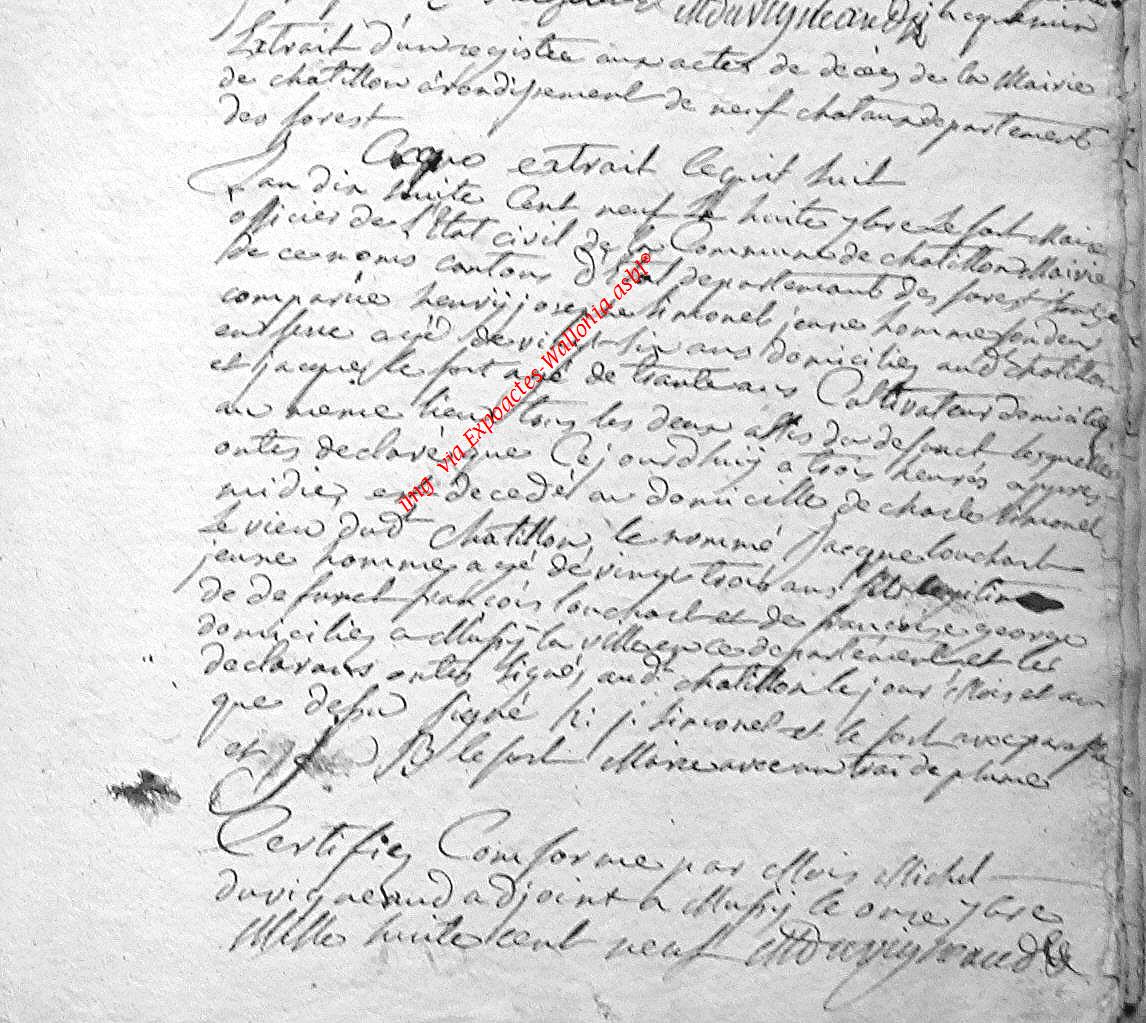 MDuvigneaud
Extrait d'un registre aux actes de décés de la Mairie
de chatillon arondissement de neuf chataux departement
des forest
extrait le quit suit
L'an dix huite Cent neuf le huite 7bre le fort Maire
officier de l'Etat civil de la Commune de chatillon Mairie
de ce noms cantons d'Etal departements des forest sont
comparue henrij josephe Simonet jeune homme fondeur
agé de vingt six ans domicilies aud Chatillon
et jacques le fort agé de trante ans Cultivateur domicilies
au meme lieux tous les deux du defunct lesquelles
ontes declaré que Cejourdhuij a trois heures appres
midies est decedé au domicille de charle Simonet
le vieu dudt Chatillon le nommé jacque louchart
jeune homme agé de vingt trois ans fils legitim
de defunct françois louchart et de françoise george
domicilies a Mussij la ville ce departement et les
declarans ontes signés audt chatillon le jour Mois et an
que dessu signé h: j: Simonet et le fort avec paraffe
et B le fort Maire avec un trai de plume
Certifies Comforme par Mois Michel
duvigneaud adjoint a Mussij le onze 7bre
Mille huite cent neuf MDuvigneaud
img via Expoactes-Wallonia asbl©